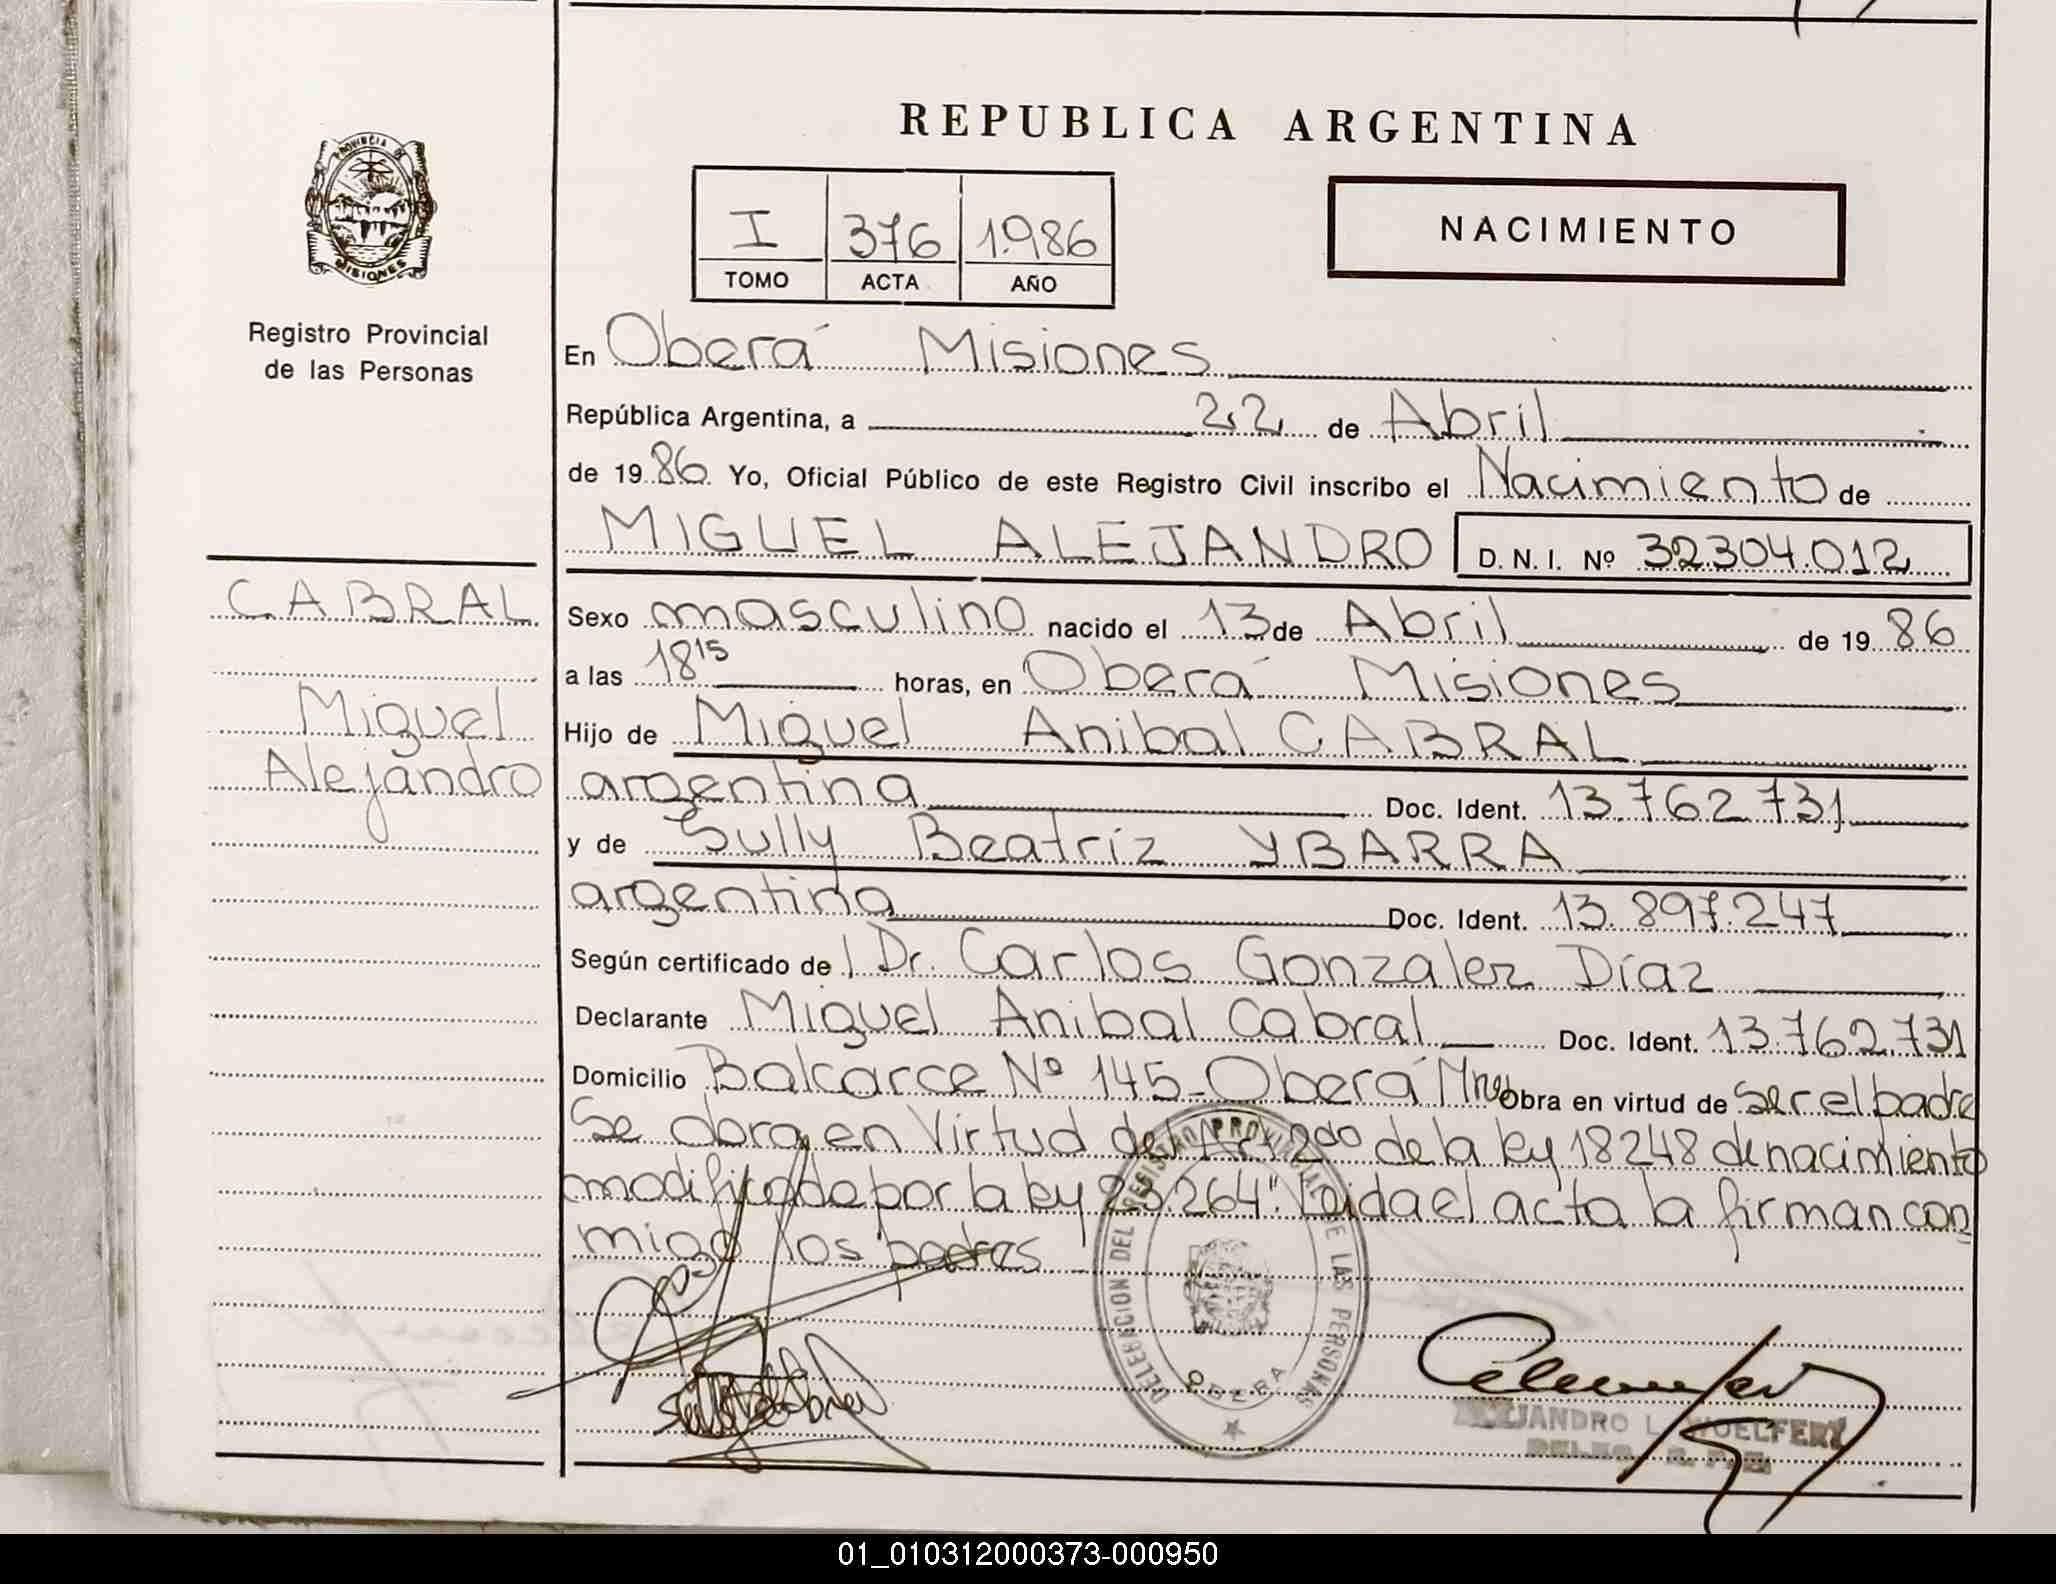 REPUBLICA ARGENTINA
PROVINCIA DE
MISIONES
Registro Provincial
de las Personas
I 376 1.986
TOMO ACTA AÑO
NACIMIENTO
En Oberá Misiones
República Argentina, a 22 de Abril
de 19 86 Yo, Oficial Público de este Registro Civil inscribo el Nacimiento de
MIGUEL ALEJANDRO D. N. I. Nº 32.304.012
CABRAL
Miguel
Alejandro
Sexo masculino nacido el 13 de Abril de 19 86
a las 18 15 horas, en Oberá Misiones
Hijo de Miguel Anibal CABRAL
argentina Doc. Ident. 13.762.731
y de Sully Beatriz YBARRA
argentina Doc. Ident. 13.897.247
Según certificado de Dr. Carlos Gonzalez Díaz
Declarante Miguel Anibal Cabral Doc. Ident. 13.762.731
Domicilio Balcarce Nº 145 - Oberá Mnes Obra en virtud de ser el padre
Se obra en Virtud del Art 2do de la ley 18248 de nacimiento
modificado por la ley 23.264". Leida el acta la firman con
migo los padres
DELEGACION DEL REGISTRO PROVINCIAL DE LAS PERSONAS
OBERA
ALEJANDRO L. WOELFERT
01_010312000373-000950